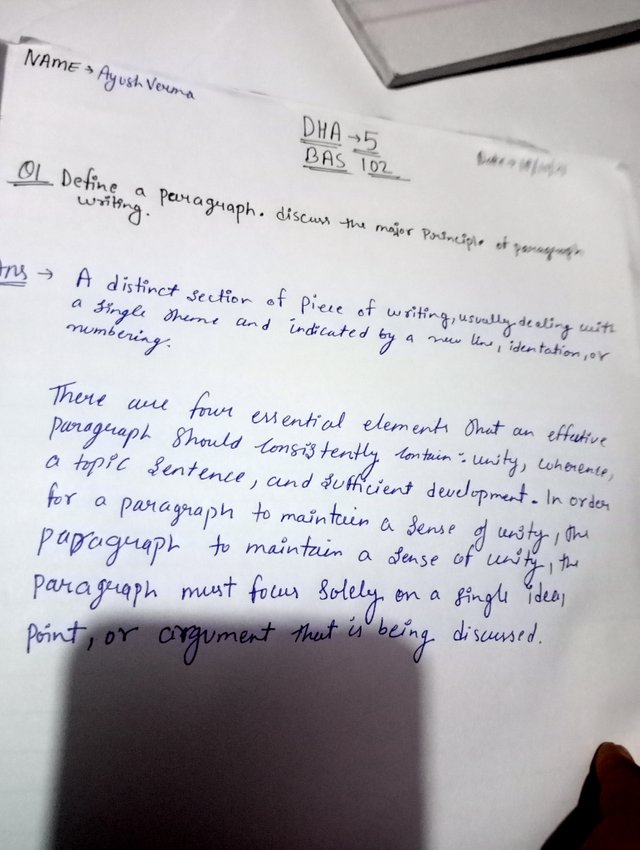 NAME → Ayush Verma
DHA → 5
BAS 102
Q1 Define a paragraph. discuss the major principle of paragraph
writing.
Ans → A distinct section of piece of writing, usually dealing with
a single theme and indicated by a new line, identation, or
numbering.
There are four essential elements that an effective
paragraph should consistently contain: unity, coherence,
a topic sentence, and sufficient development. In order
for a paragraph to maintain a sense of unity, the
paragraph to maintain a sense of unity, the
paragraph must focus solely on a single idea,
point, or argument that is being discussed.